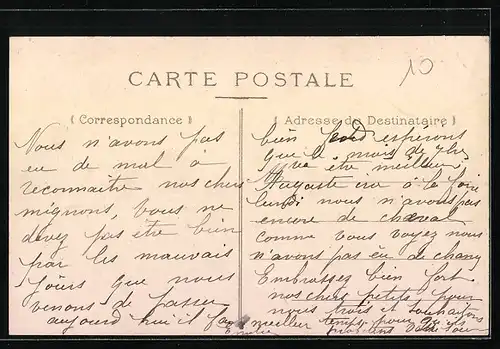 10
CARTE POSTALE
( Correspondance )
( Adresse du Destinataire )
Nous n'avons pas
eu de mal a
reconnaitre nos chers
mignons, vous ne
devez pas être bien
par les mauvais
jours que nous
venons de passer
aujourd hui il fait
bien froid espérons
que le mois de
va être meilleur
Auguste eu à la foire
lundi nous n'avons pas
encore de cheval
comme vous voyez nous
n'avons pas eu de chang
Embrassez bien fort
nos chers petits, pour
nous trois et souhaitons
meilleur temps pour qu'ils